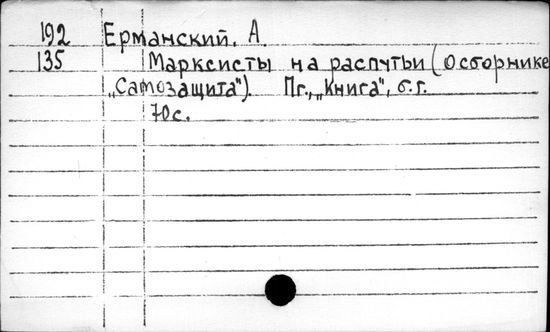 192 Ерманский, А.
135 Марксисты на распутьи (О сборнике
„Самозащита"). Пг., „Книга", б.г.
70с.